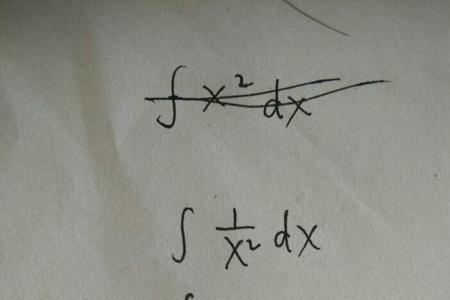 ∫ x² dx
∫ 1/x² dx